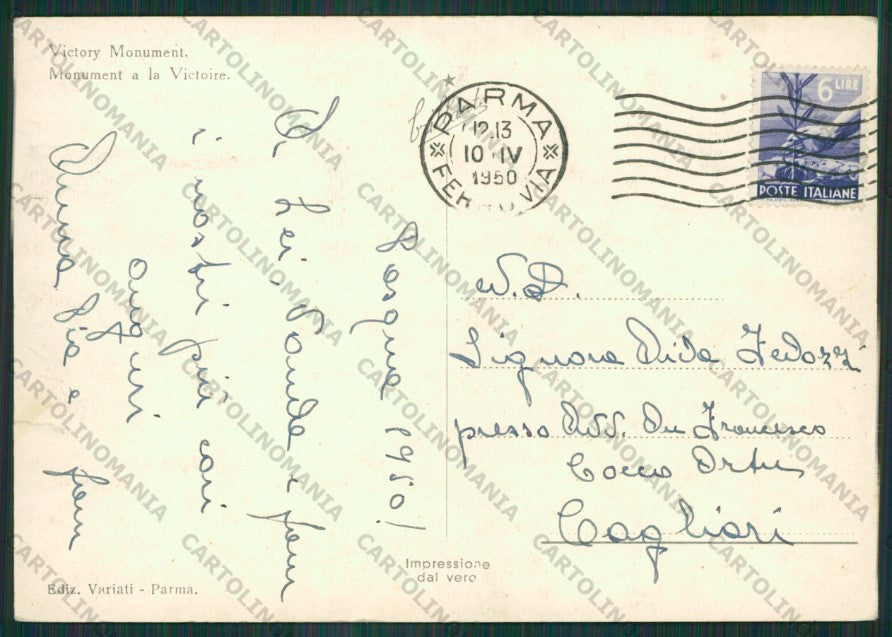 Victory Monument.
Monument a la Victoire.
PARMA
12.13
10·IV
1950
FERROVIA
6 LIRE
POSTE ITALIANE
Pasqua 1950!
A Lei, Vanda e fam
i nostri più cari
auguri
Anna Pia e fam
N. D.
Signora Dida Fedozzi
presso Avv. Du Francesco
Cocco Ortu
Cagliari
Impressione
dal vero
Ediz. Variati - Parma.
CARTOLINOMANIA